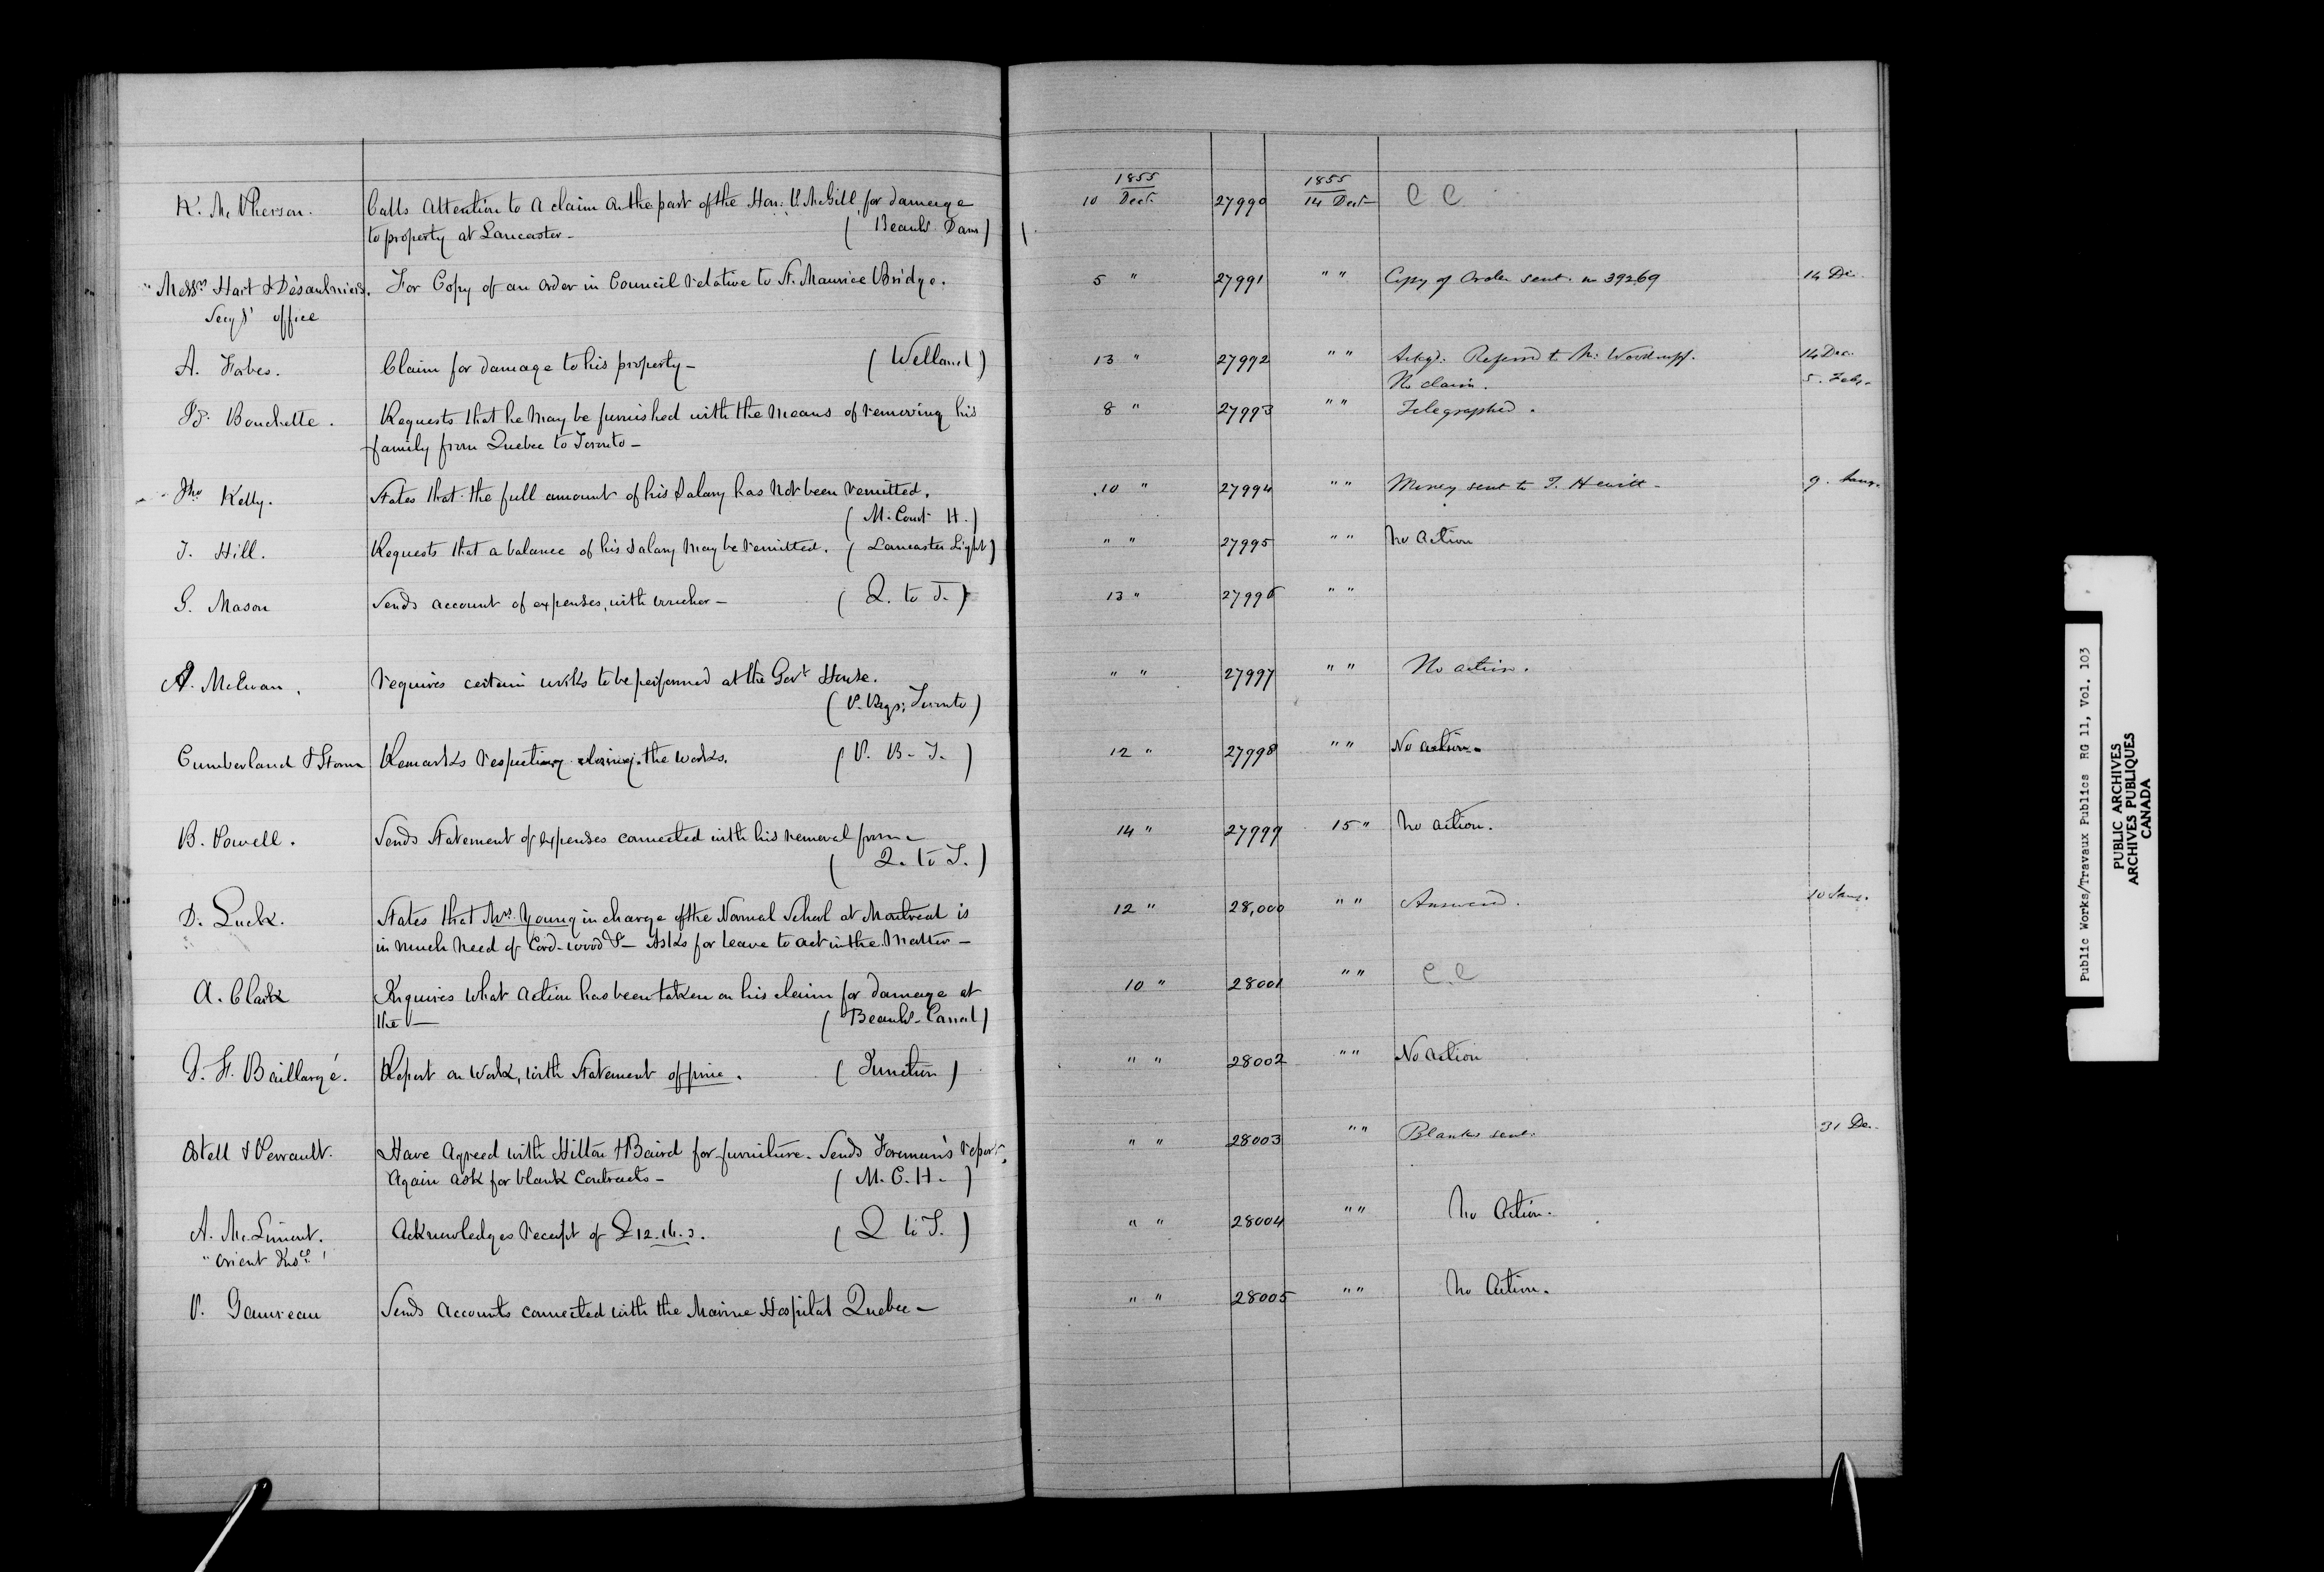 1855 1855
K. McPherson. Calls Attention to a claim on the part of the Hon: P. McGill for damage 10 Decr. 27990 14 Decr C C
to property at Lancaster - ( Beauhs. Dam )
"Messrs Hart & Désaulniers. For Copy of an order in Council relative to St. Maurice Bridge. 5 " 27991 " " Copy of Order sent. 39269 14 De.
Secy's' office
A. Forbes. Claim for damage to his property - ( Welland ) 13 " 27992 " " Ackgd: Referred to Mr. Woodruff. 14 Dec.
No claim. 5. Feby.
Bouchette. Requests that he may be furnished with the means of removing his 8 " 27993 " " Telegraphed.
family from Quebec to Toronto -
Jno Kelly. States that the full amount of his Salary has not been remitted. 10 " 27994 " " Money sent to T. Hewitt - 9. Jany.
( M. Court H. )
J. Hill. Requests that a balance of his Salary may be remitted. ( Lancaster Light ) " " 27995 " " No Action
G. Mason Sends account of expenses, with voucher - ( Q. to T. ) 13 " 27996 " "
A. McEwan. requires certain works to be performed at the Govt House. " " 27997 " " No action.
( P. Bgs; Toronto )
Cumberland & Storm Remarks respecting closing the works. ( P. B. T. ) 12 " 27998 " " No action.
B. Powell. Sends Statement of expenses connected with his removal from - 14 " 27999 15 " No action.
( Q. to T. )
D. Luck. States that Mrs. Young in charge of the Normal School at Montreal is 12 " 28,000 " " Answered. 10 Jany.
in much need of Cord-wood &- Asks for leave to act in the matter -
A. Clark Inquires what action has been taken on his claim for damage at 10 " 28001 " " C.C
the - ( Beauhs. Canal )
F. Baillargé. Report on Work, with Statement of price. ( Junction ) " " 28002 " " No action
Ostell & Perrault. Have Agreed with Hilton & Baird for furniture. Sends Foreman's report, " " 28003 " " Blanks sent. 31 De.
Again ask for blank Contracts - ( M. C. H. )
A. McLimont. Acknowledges receipt of £12.16.3. ( Q to T. ) " " 28004 " " No Action.
"Orient Insce'
P. Gauvreau Sends Accounts connected with the Marine Hospital Quebec - " " 28005 " " No Action.
Public Works/Travaux Publics RG 11, Vol. 103
PUBLIC ARCHIVES
ARCHIVES PUBLIQUES
CANADA